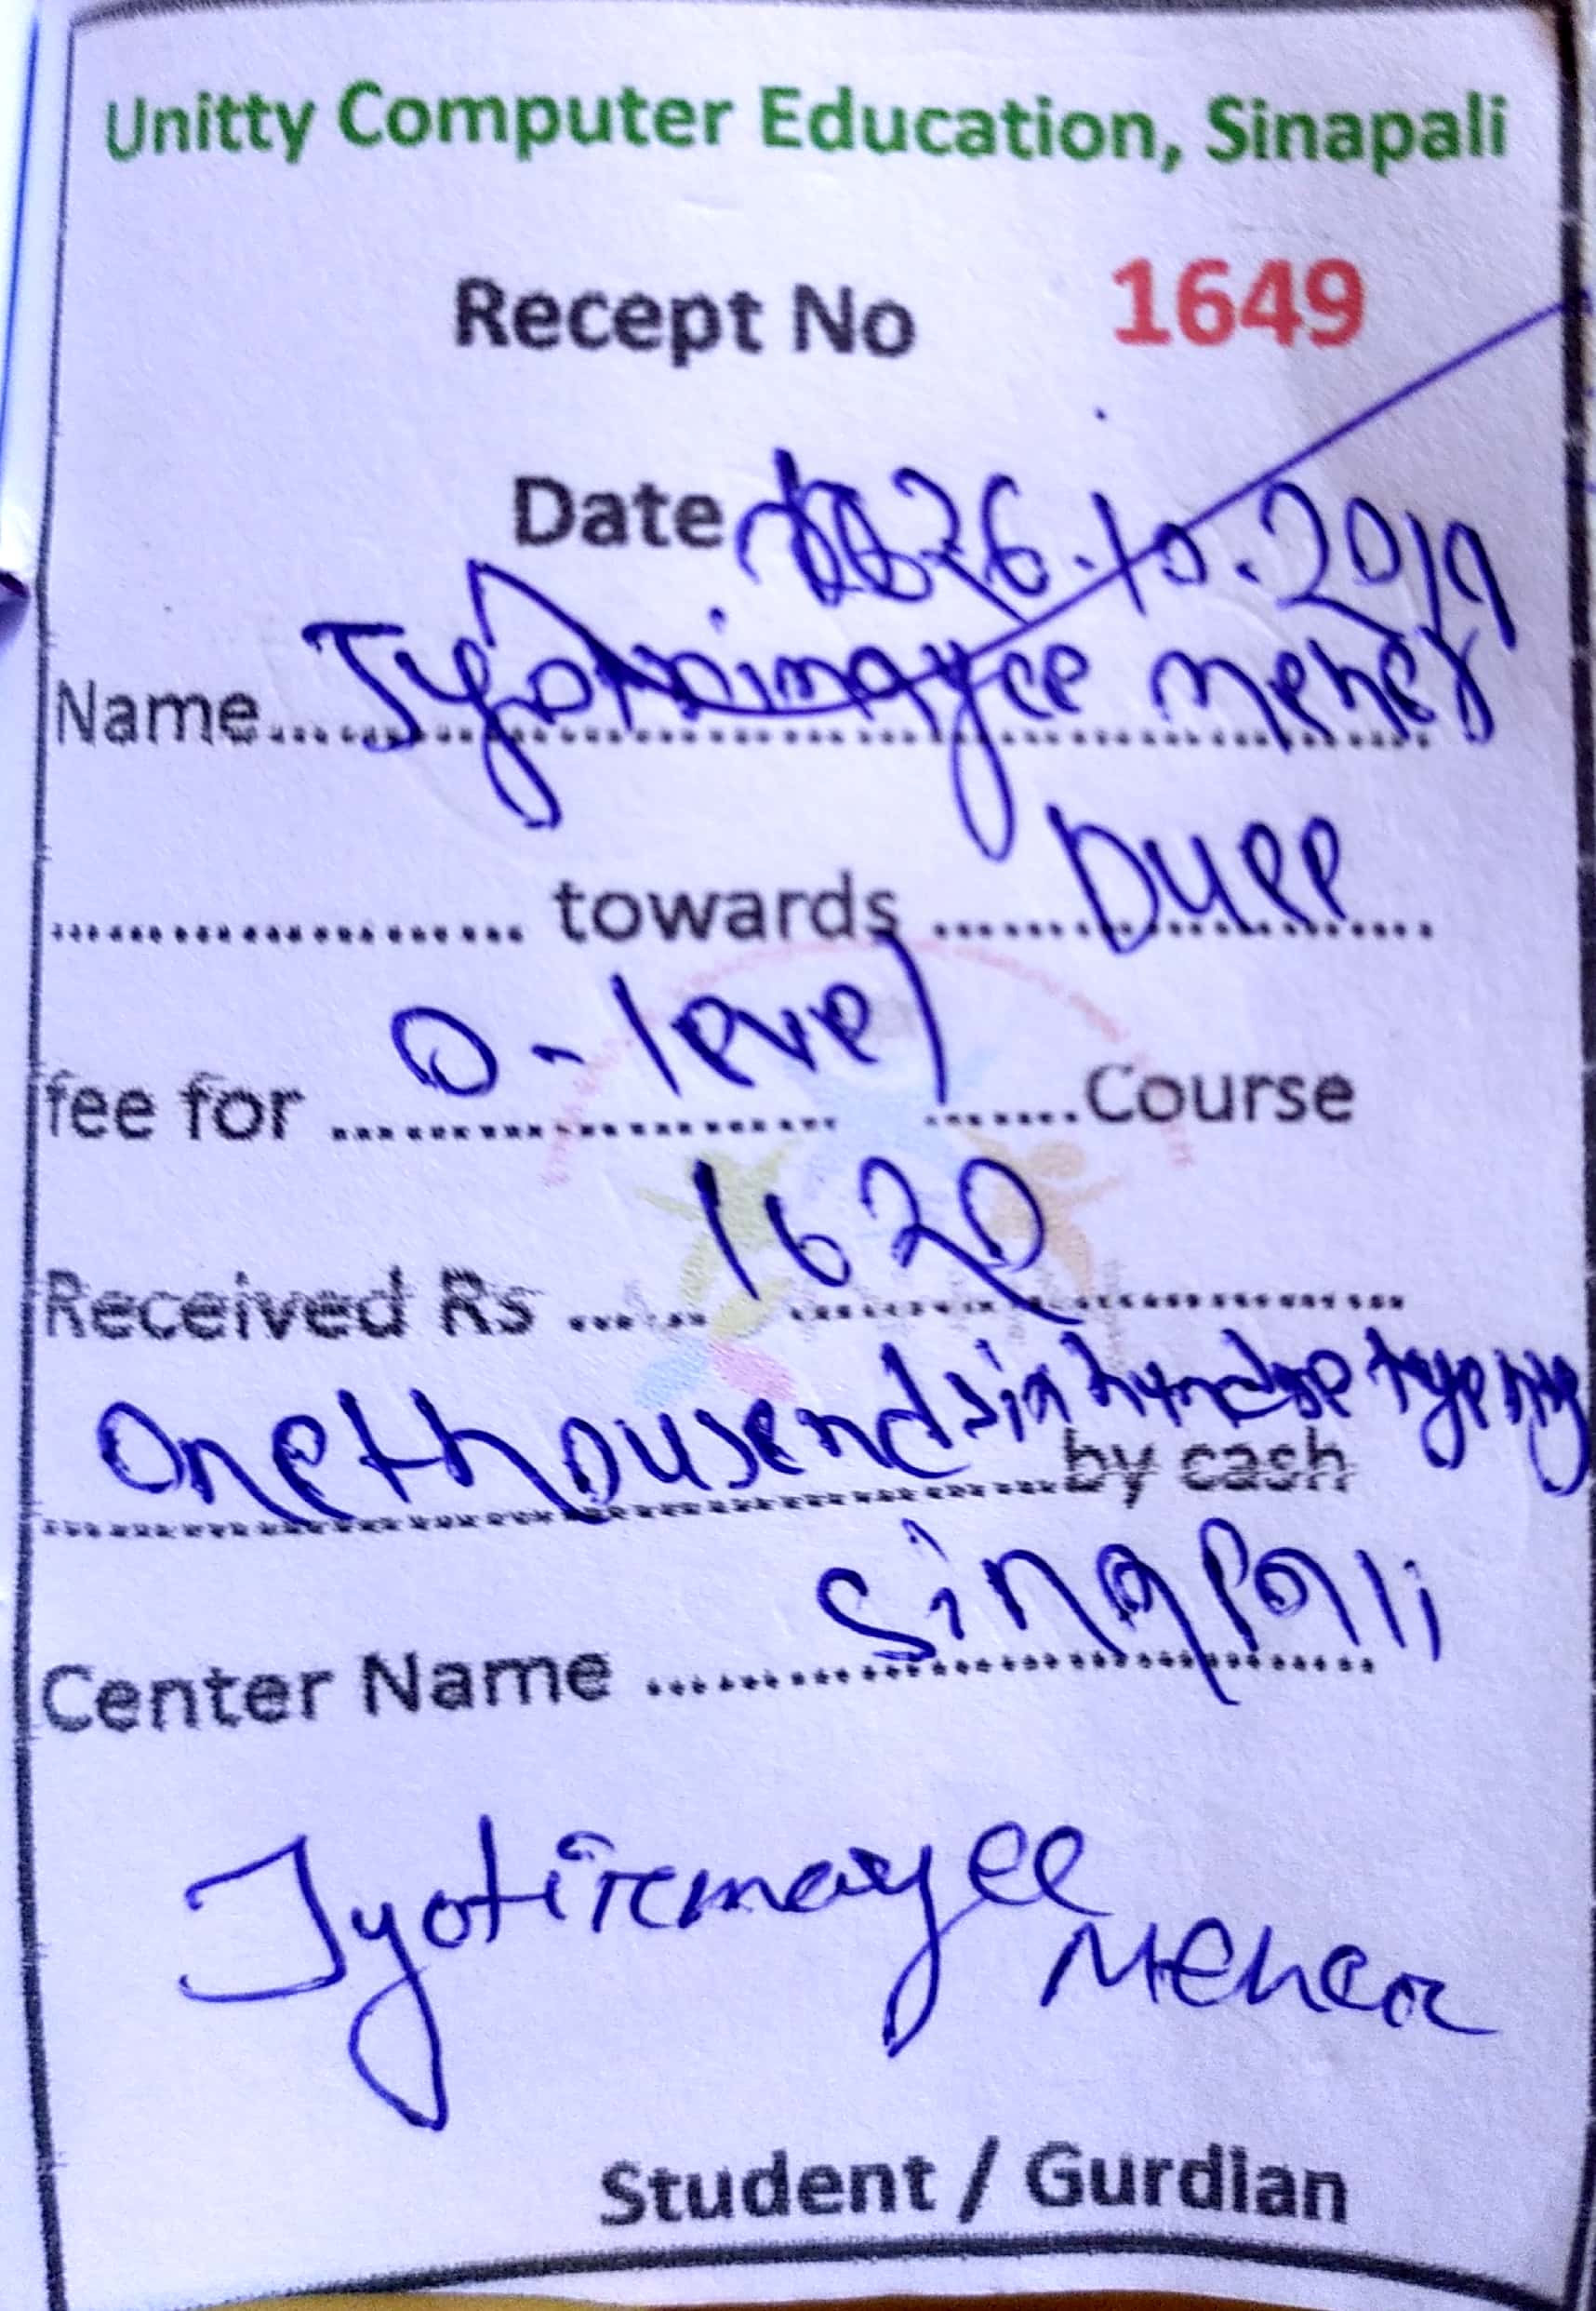 Unitty Computer Education, Sinapali
Recept No 1649
Date 26.10.2019
Name.......Jyotirimayee meher
.................... towards ....Duee....
fee for ....O-level....Course
Received Rs ....1620....
One thousend six hundre by cash
Center Name ....Sinapali
Jyotiremayee
Meher
Student / Gurdian